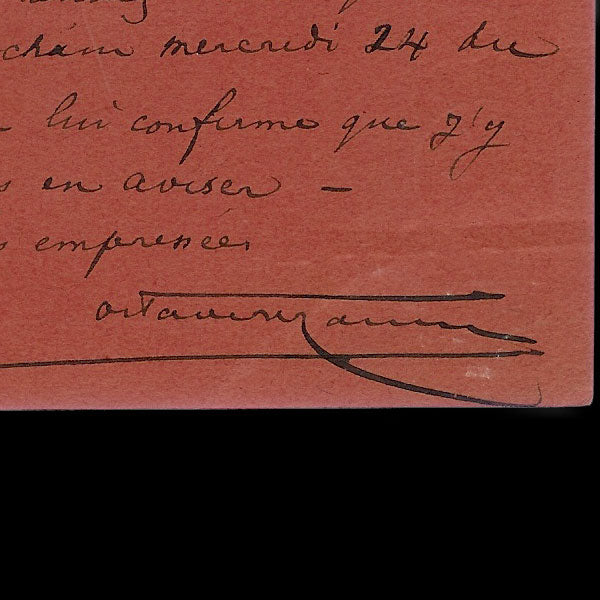 cham mercredi 24 du
lui confirme que j'y
s en aviser –
s empressées
octave uzanne